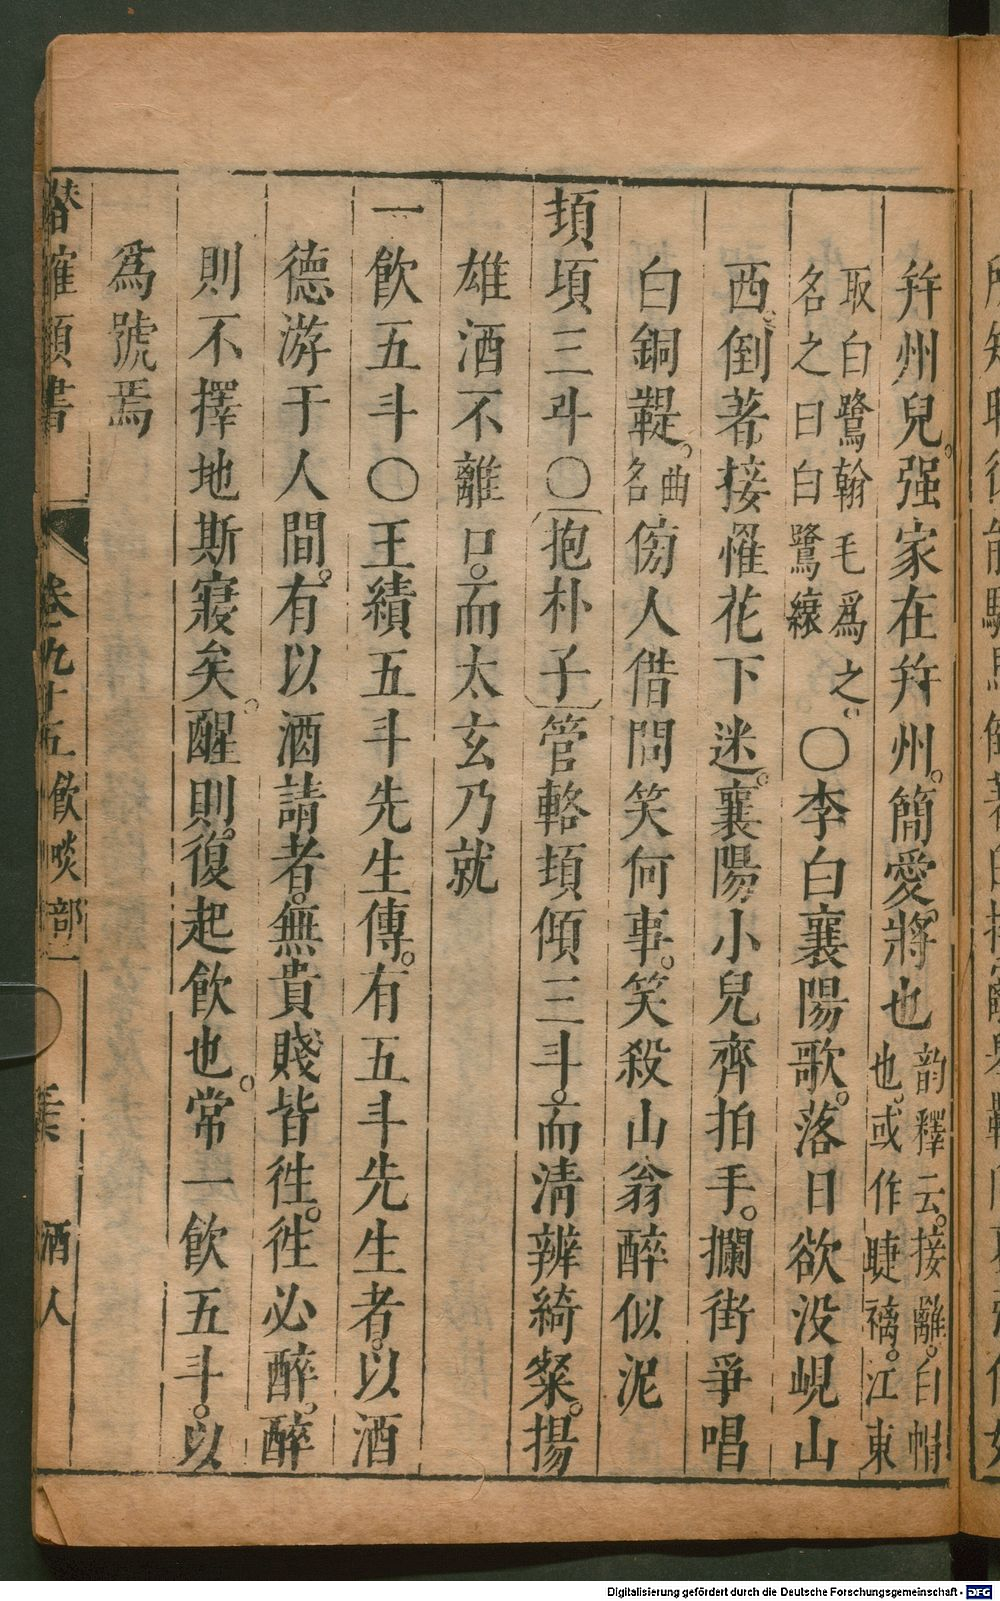 幷州兒。强家在幷州。簡愛。將也韵釋云。接䍦。白帽也。或作睫䍦。江東
取白鷺翰毛爲之。名之曰白鷺縗〇李白襄陽歌。落日欲没峴山
西。倒著接䍦花下迷。襄陽小兒齊拍手。攔街爭唱
白銅鞮。曲名傍人借問笑何事。笑殺山翁醉似泥
頃頃三斗〇抱朴子管輅頃傾三斗。而清辨綺粲。揚
雄酒不離口。而太玄乃就
一飲五斗〇王績五斗先生傳。有五斗先生者。以酒
德游于人間。有以酒請者。無貴賤皆徃。徃必醉。醉
則不擇地斯寢矣。醒則。復起飲也。常一飲五斗。以
爲號焉
潛確類書 卷九十五飲啖部一 酒人
Digitalisierung gefördert durch die Deutsche Forschungsgemeinschaft - DFG